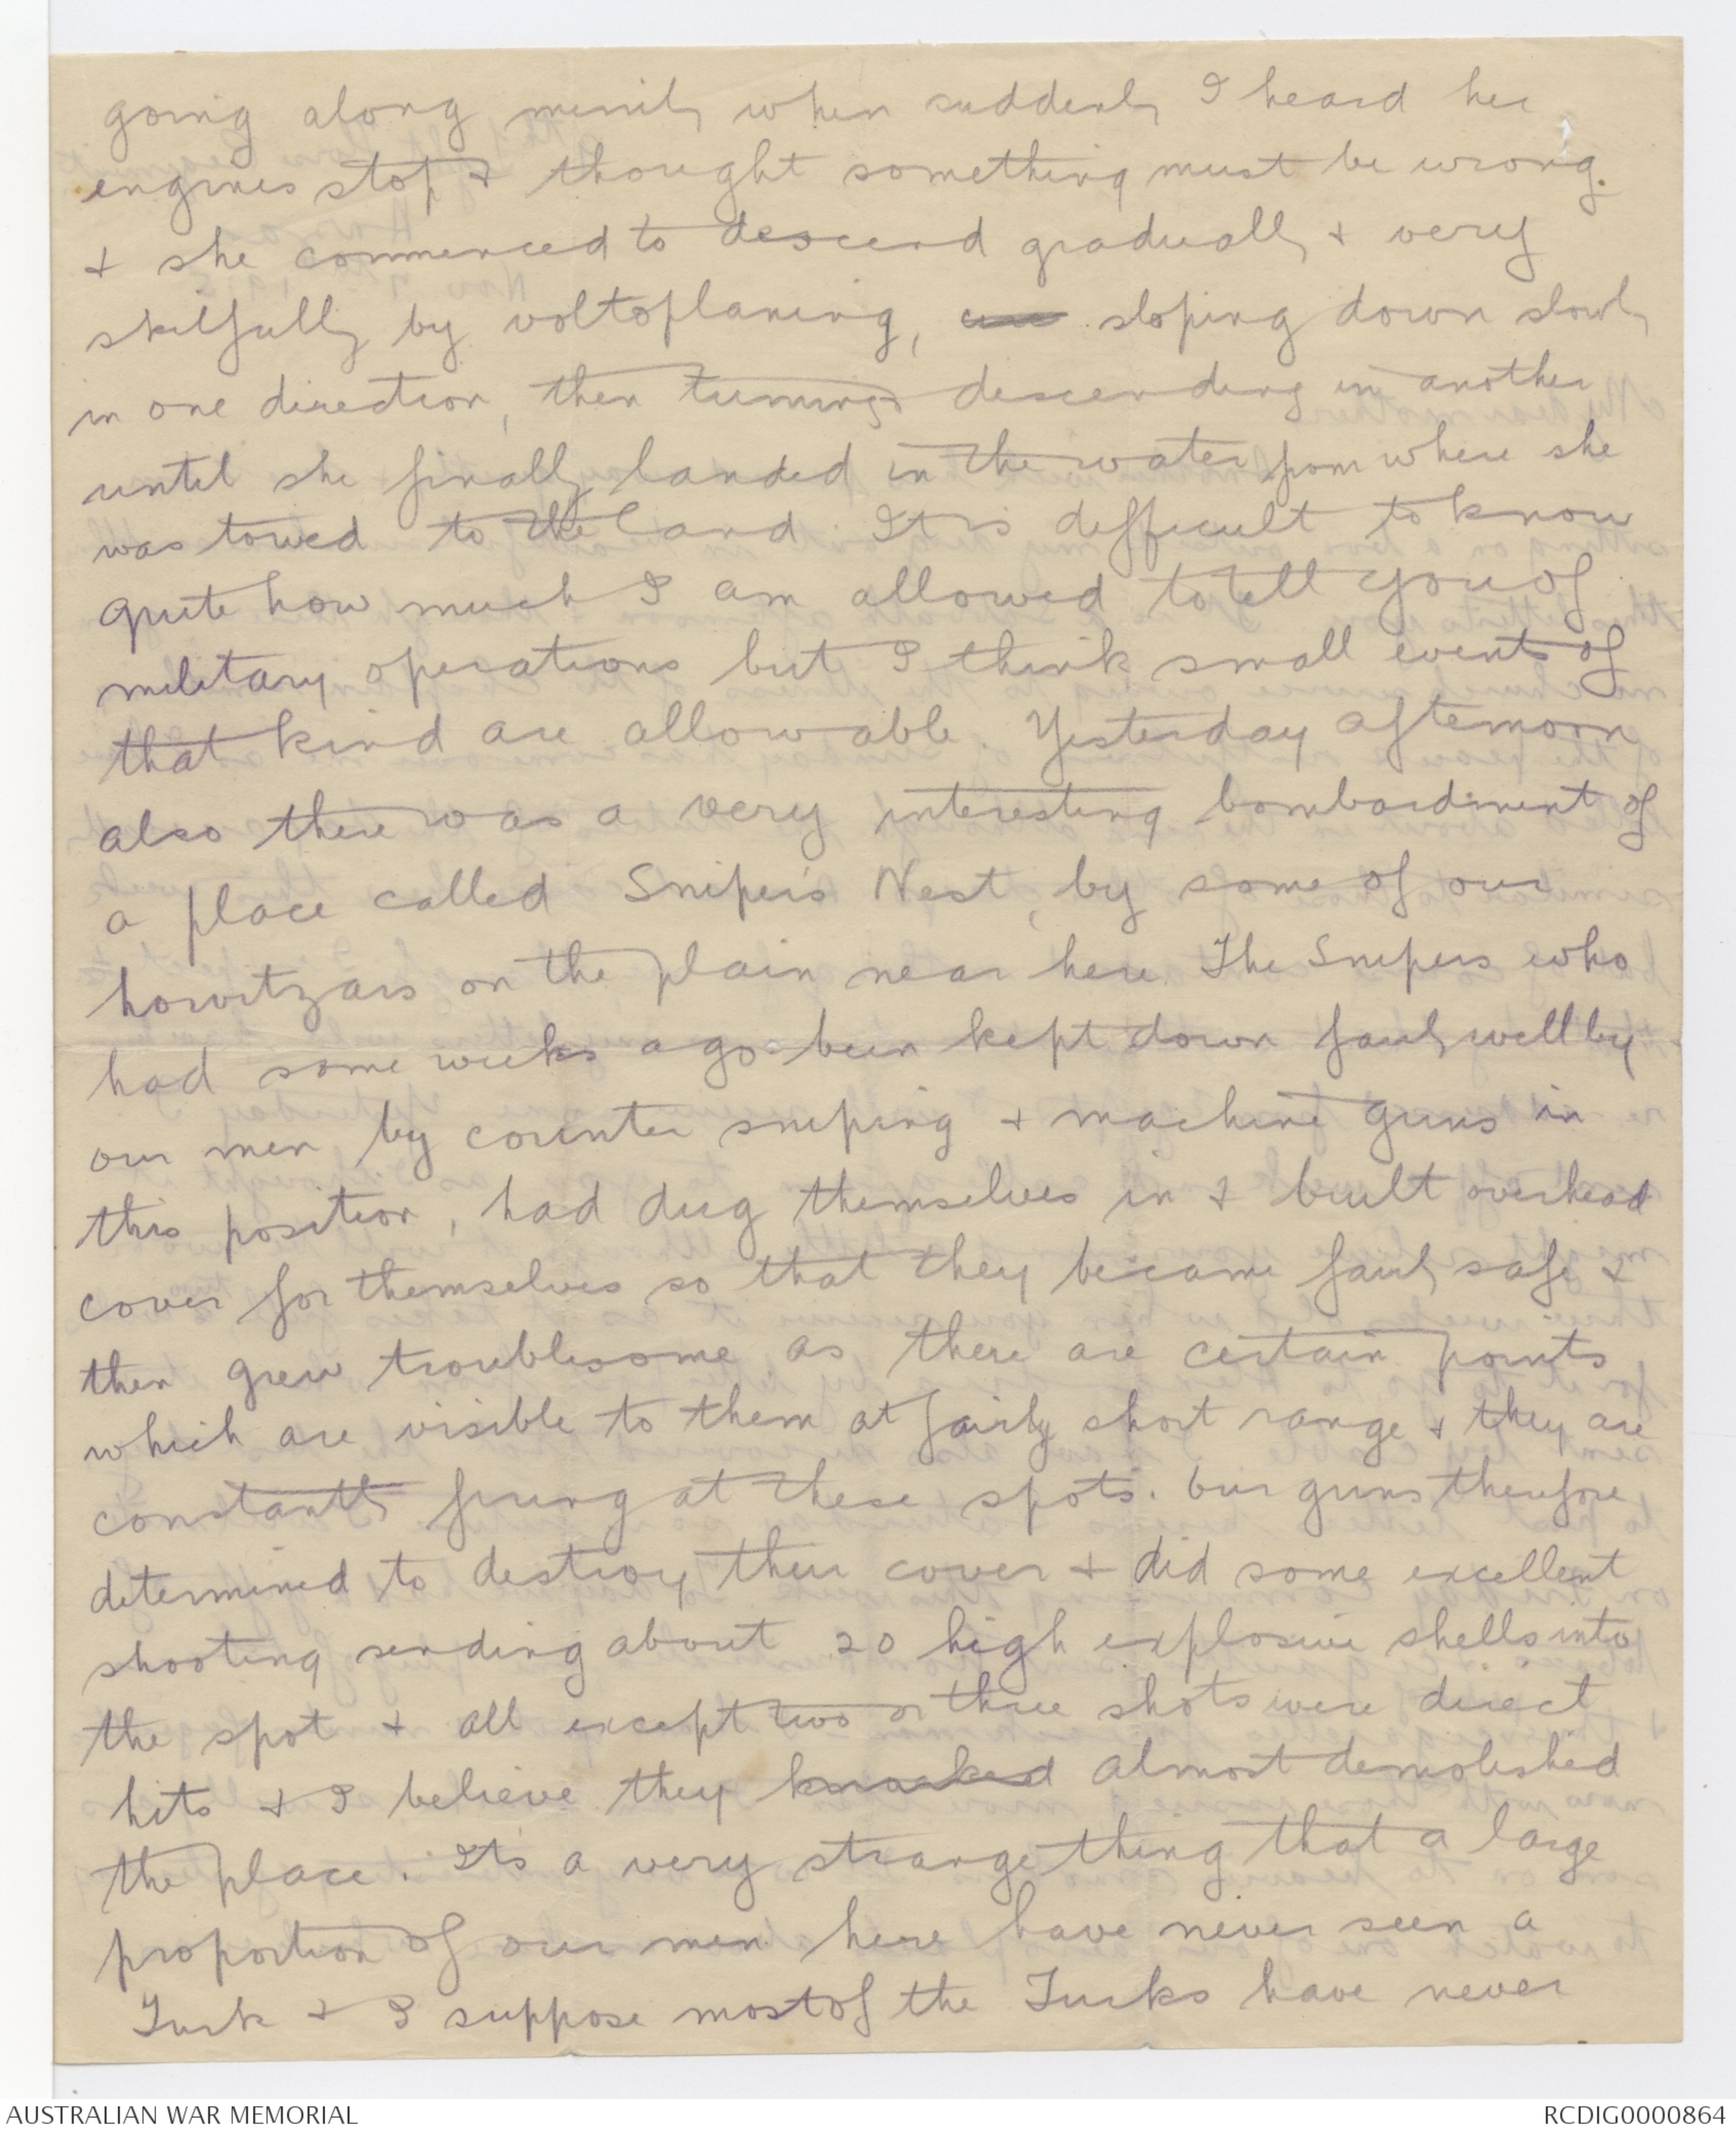 going along merrily when suddenly I heard her
engines stop & thought something must be wrong.
& she commenced to descend gradually & very
skilfully by voltoplaning, sloping down slowly
in one direction, then turning & descending in another
until she finally landed in the water from where she
was towed to the land. It is difficult to know
quite how much I am allowed to tell you of
military operations but I think small events of
that kind are allowable. Yesterday afternoon
also there was a very interesting bombardment of
a place called Sniper's Nest, by some of our
howitzars on the plain near here. The Snipers who
had some weeks ago been kept down fairly well by
our men by counter sniping & machine guns in
this position, had dug themselves in & built overhead
cover for themselves so that they became fairly safe &
then grew troublesome as there are certain points
which are visible to them at fairly short range & they are
constantly firing at these spots. Our guns therefore
determined to destroy their cover & did some excellent
shooting sending about 20 high explosive shells into
the spot & all except two or three shots were direct
hits & I believe they knocked almost demolished
the place. Its a very strange thing that a large
proportion of our men here have never seen a
Turk & I suppose most of the Turks have never
AUSTRALIAN WAR MEMORIAL
RCDIG0000864